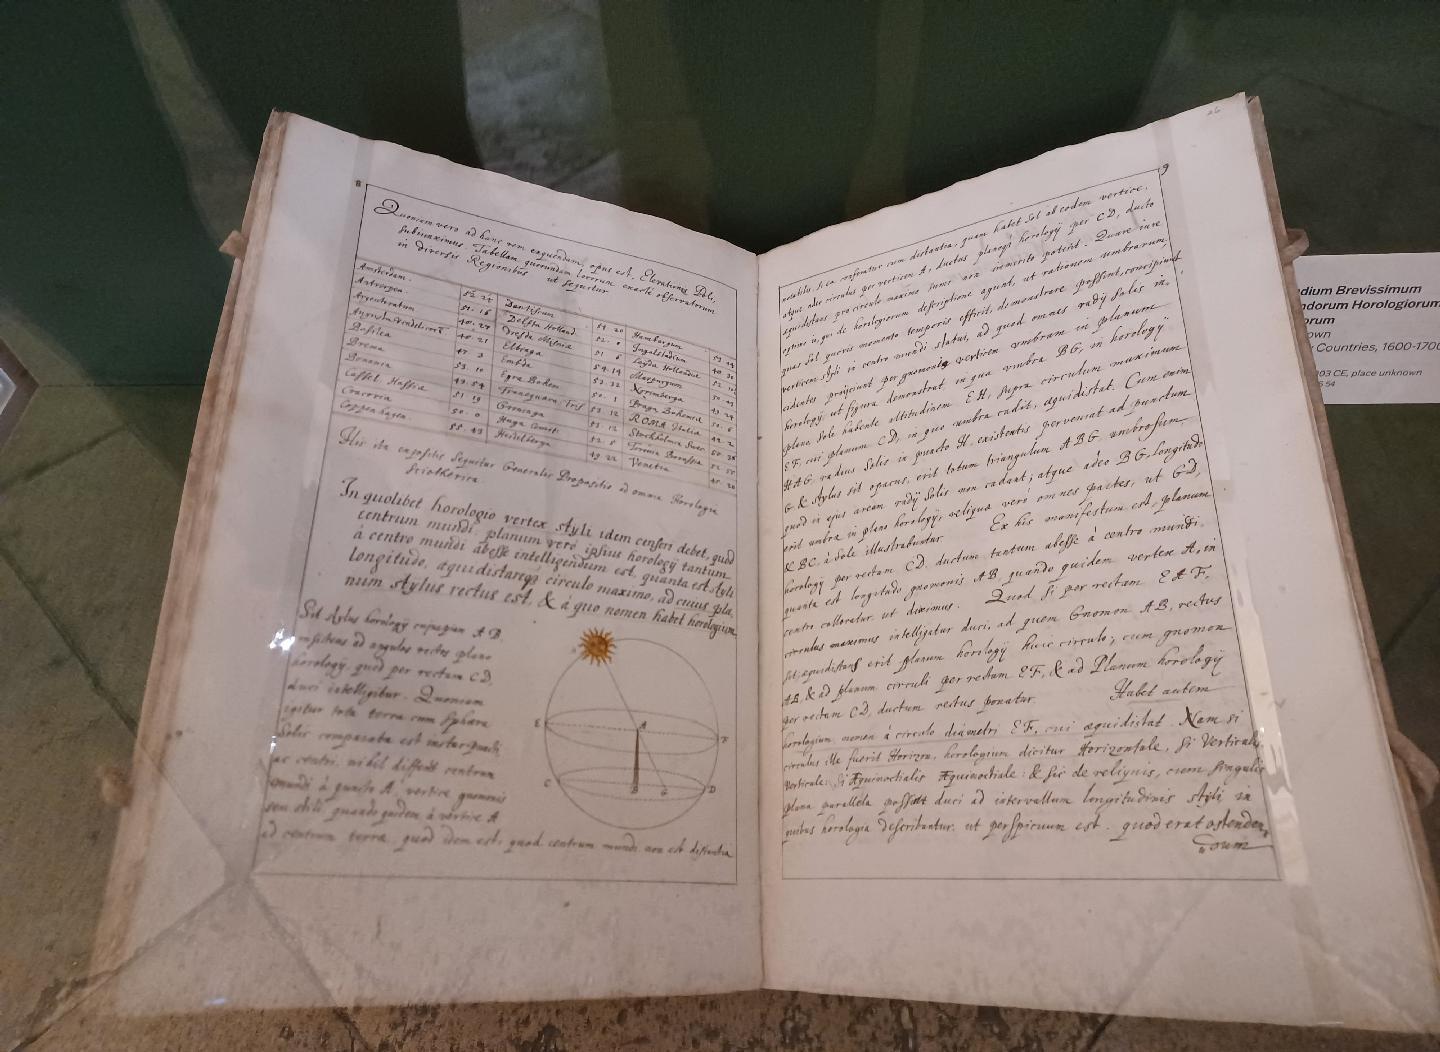 8
Quoniam vero ad hanc rem exequendam, opus est, Elevationes Poli,
subiunximus Tabellam quorundam locorum exacte observatarum
in diversis Regionibus ut sequitur
Amsterdam. 52. 25 Dantiscum 54. 20 Hamburgum
Antverpen. 51. 16 Delfta Holland. 52. Ingolstadium
Argentoratum Dresda Misniæ 51. 6 Leyda Hollandiæ
Augusta Vindelicorum Elbinga 54. 14 Marpurgum
Basilea 47. 3 Embda 53. 32 Norimberga
Brema 53. 10 Egra Bohem. 50. 1 Praga Bohemiæ
Bononia 49. 54 Franequara Fris. 53. 12 ROMA Italiæ
Cassel Hassiæ 51. 19 Groninga 53. 12 Stockholmia Suec.
Cracovia 50. 0 Haga Comit. 52. 8 Torunia Borussiæ
Coppenhagen. 55. 43 Heidelberga 49. 22 Venetiæ 45.
His ita expositis sequitur Generalis Propositio ad omnia Horologia
Sciotherica
In quolibet horologio vertex styli idem censeri debet, quod
centrum mundi: planum verò ipsius horologij tantum
à centro mundi abesse intelligendum est, quanta est styli
longitudo, æquidistareqз circulo maximo, ad cuius pla,
num stylus rectus est, & à quo nomen habet horologium
Sit stylus horologij cujuspiam A B.
insistens ad angulos rectos plano
horologij, quod per rectam C D,
duci intelligitur. Quoniam
igitur tota terra cum Sphæra
Solis comparata est instar puncti,
ac centri, nihil differt centrum
mundi à puncto A, vertice gnomonis
seu stili, quandoquidem à vertice A
ad centrum terræ, quod idem est, quod centrum mundi non est distantia
A
E
F
C
B
G
D
26
9
notabilis, si ea conferatur cum distantia, quam habet Sol ab eodem vertice,
atque adeo circulus per verticem A, ductus plano horologij per CD, ducto
æquidistans, pro circulo maximo sumi non immerito poterit. Quare iure
optimo ij, qui de horologiorum descriptione agunt, ut rationem umbrarum,
quas Sol quovis momento temporis efficit, demonstrare possent, concipiunt
verticem styli in centro mundi statui, ad quod omnes radij Solis in,
cidentes proijciunt per gnomonis verticem umbram in planum
horologij, ut figura demonstrat, in qua umbra BG, in horologij
plano, Sole habente altitudinem EH, supra circulum maximum
EF, cui planum CD, in quo umbra cadit, æquidistat. Cum enim
HAG, radius Solis in puncto H, existentis perveniat ad punctum
G & stylus sit opacus, erit totum triangulum ABG, umbrosum,
quod in ejus aream radij Solis non cadant; atque adeo BG, longitudo
erit umbræ in plano horologij, reliquæ verò omnes partes, ut GD,
& BC, à Sole illustrabuntur. Ex his manifestum est, planum
horologij per rectam CD, ductum tantum abesse à centro mundi,
quanta est longitudo gnomonis AB, quando quidem vertex A, in
centro collocatur, ut diximus. Quod si per rectam EAF,
circulus maximus intelligatur duci, ad quem Gnomon AB, rectus
sit, æquidistans erit planum horologij huic circulo, cum gnomon
AB, & ad planum circuli per rectam EF, & ad Planum horologij
per rectam CD, ductum rectus ponatur. Habet autem
horologium, nomen à circulo diametri EF, cui æquidistat. Nam si
circulus ille fuerit Horizon, horologium dicitur Horizontale, si Verticalis,
Verticale, si Æquinoctialis Æquinoctiale: & sic de reliquis, cum singulis
plana parallela possunt duci ad intervallum longitudinis styli in
quibus horologia describantur, ut perspicuum est. quod erat ostenden,
dum
dium Brevissimum
ndorum Horologiorum
orum
own
Countries, 1600-1700
03 CE, place unknown